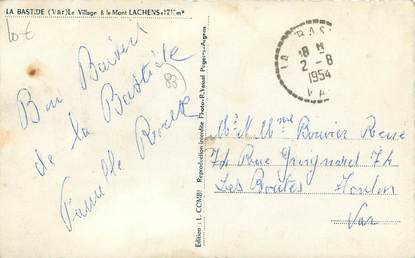 LA BASTIDE (Var) Le Village & le Mont LACHENS 1715m
10€
Bon Baisers
de la Bastide
Famille
83
Edition : L. COMBE
Reproduction interdite Photo-R. Vassal Pugets-s-Argens
LA BAS
18 H
2 - 8
1954
VAR
Mr. Mme Bouvier Rene
74 Rue Guignard 74
Les Routes Toulon
Var